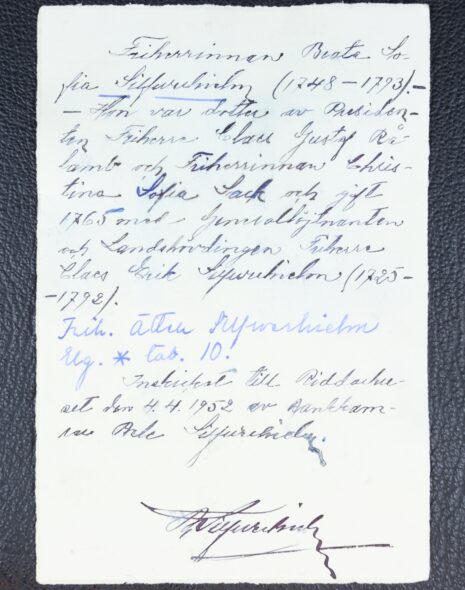 Friherrinnan Beata So-
fia Silfverhielm (1748–1793).–
– Hon var dotter av Presiden-
ten Friherre Claes Gustaf Rå-
lamb och Friherrinnan Chris-
tina Sofia Sack och gift
1765 med Generallöjtnanten
och Landshövdingen Friherre
Claes Erik Silfverhielm (1725–
–1792).
Frih. Ätten Silfverhielm
Elg. * tab. 10.
till Riddarhu-
set den 4.4.1952 av Bankkam-
rer Silfverhielm.
Silfverhielm